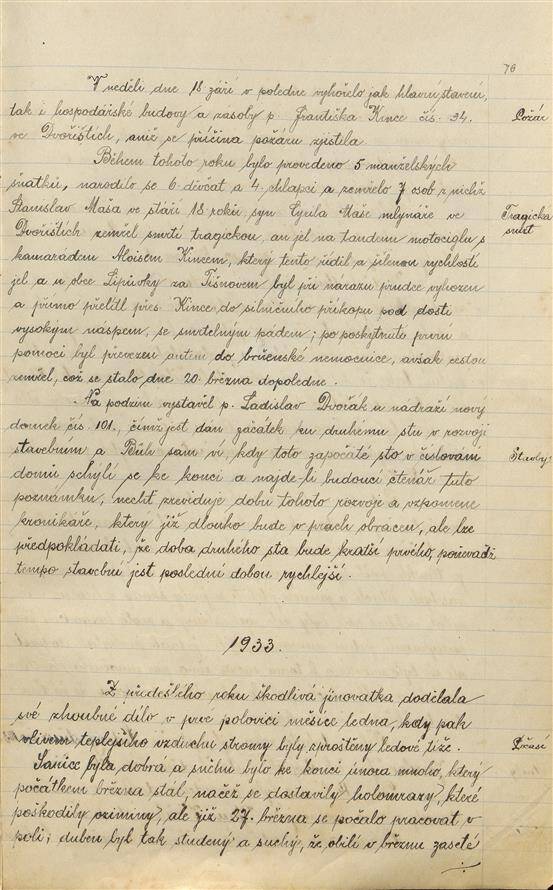 76
V neděli dne 18 září v poledne vyhořelo jak hlavní stavení,
tak i hospodářské budovy a zásoby p. Františka Kince čís. 94.
Požár
ve Dvořištích, aniž se příčina požáru zjistila.
Během tohoto roku bylo provedeno 5 manželských
sňatků, narodilo se 6 děvčat a 4 chlapci a zemřelo 7 osob z nichž
Stanislav Maša ve stáří 18 roků, syn Cyrila Maše mlynáře ve
Tragická
smrt
Dvořištích zemřel smrtí tragickou, an jel na tandem motociglu s
kamarádem Aloisem Kincem, který tento řídil a šílenou rychlostí
jel a u obce Lipůvky za Tišnovem byl při nárazu prudce vyhozen
a přímo přelítl přes Kince do silničního příkopu pod dosti
vysokým náspem, se smrtelným pádem; po poskytnutí první
pomoci byl převezen autem do brněnské nemocnice, avšak cestou
zemřel, což se stalo dne 20. března dopoledne.
Na podzim vystavěl p. Ladislav Dvořák u nádraží nový
domek čís 101., čímž jest dán začátek ku druhému stu v rozvoji
stavebním a Bůh sám ví, kdy toto započaté sto v číslování
Stavby
domů schýlí se ke konci a najde-li budoucí čtenář tuto
poznámku, nechť zreviduje dobu tohoto rozvoje a vzpomene
kronikáře, který již dlouho bude v prach obrácen, ale lze
předpokládati, že doba druhého sta bude kratší prvého, poněvadž
tempo stavební jest poslední dobou rychlejší.
1933.
Z předešlého roku škodlivá jinovatka dodělala
své zhoubné dílo v prvé polovici měsíce ledna, kdy pak
vlivem teplejšího vzduchu stromy byly zproštěny ledové tíže.
Počasí
Sanice byla dobrá a sněhu bylo ke konci února mnoho, který
počátkem března stál, načež se dostavily holomrazy, které
poškodily ozimniny, ale již 27. března se počalo pracovat v
poli; duben byl tak studený a suchý, že obilí v březnu zaseté